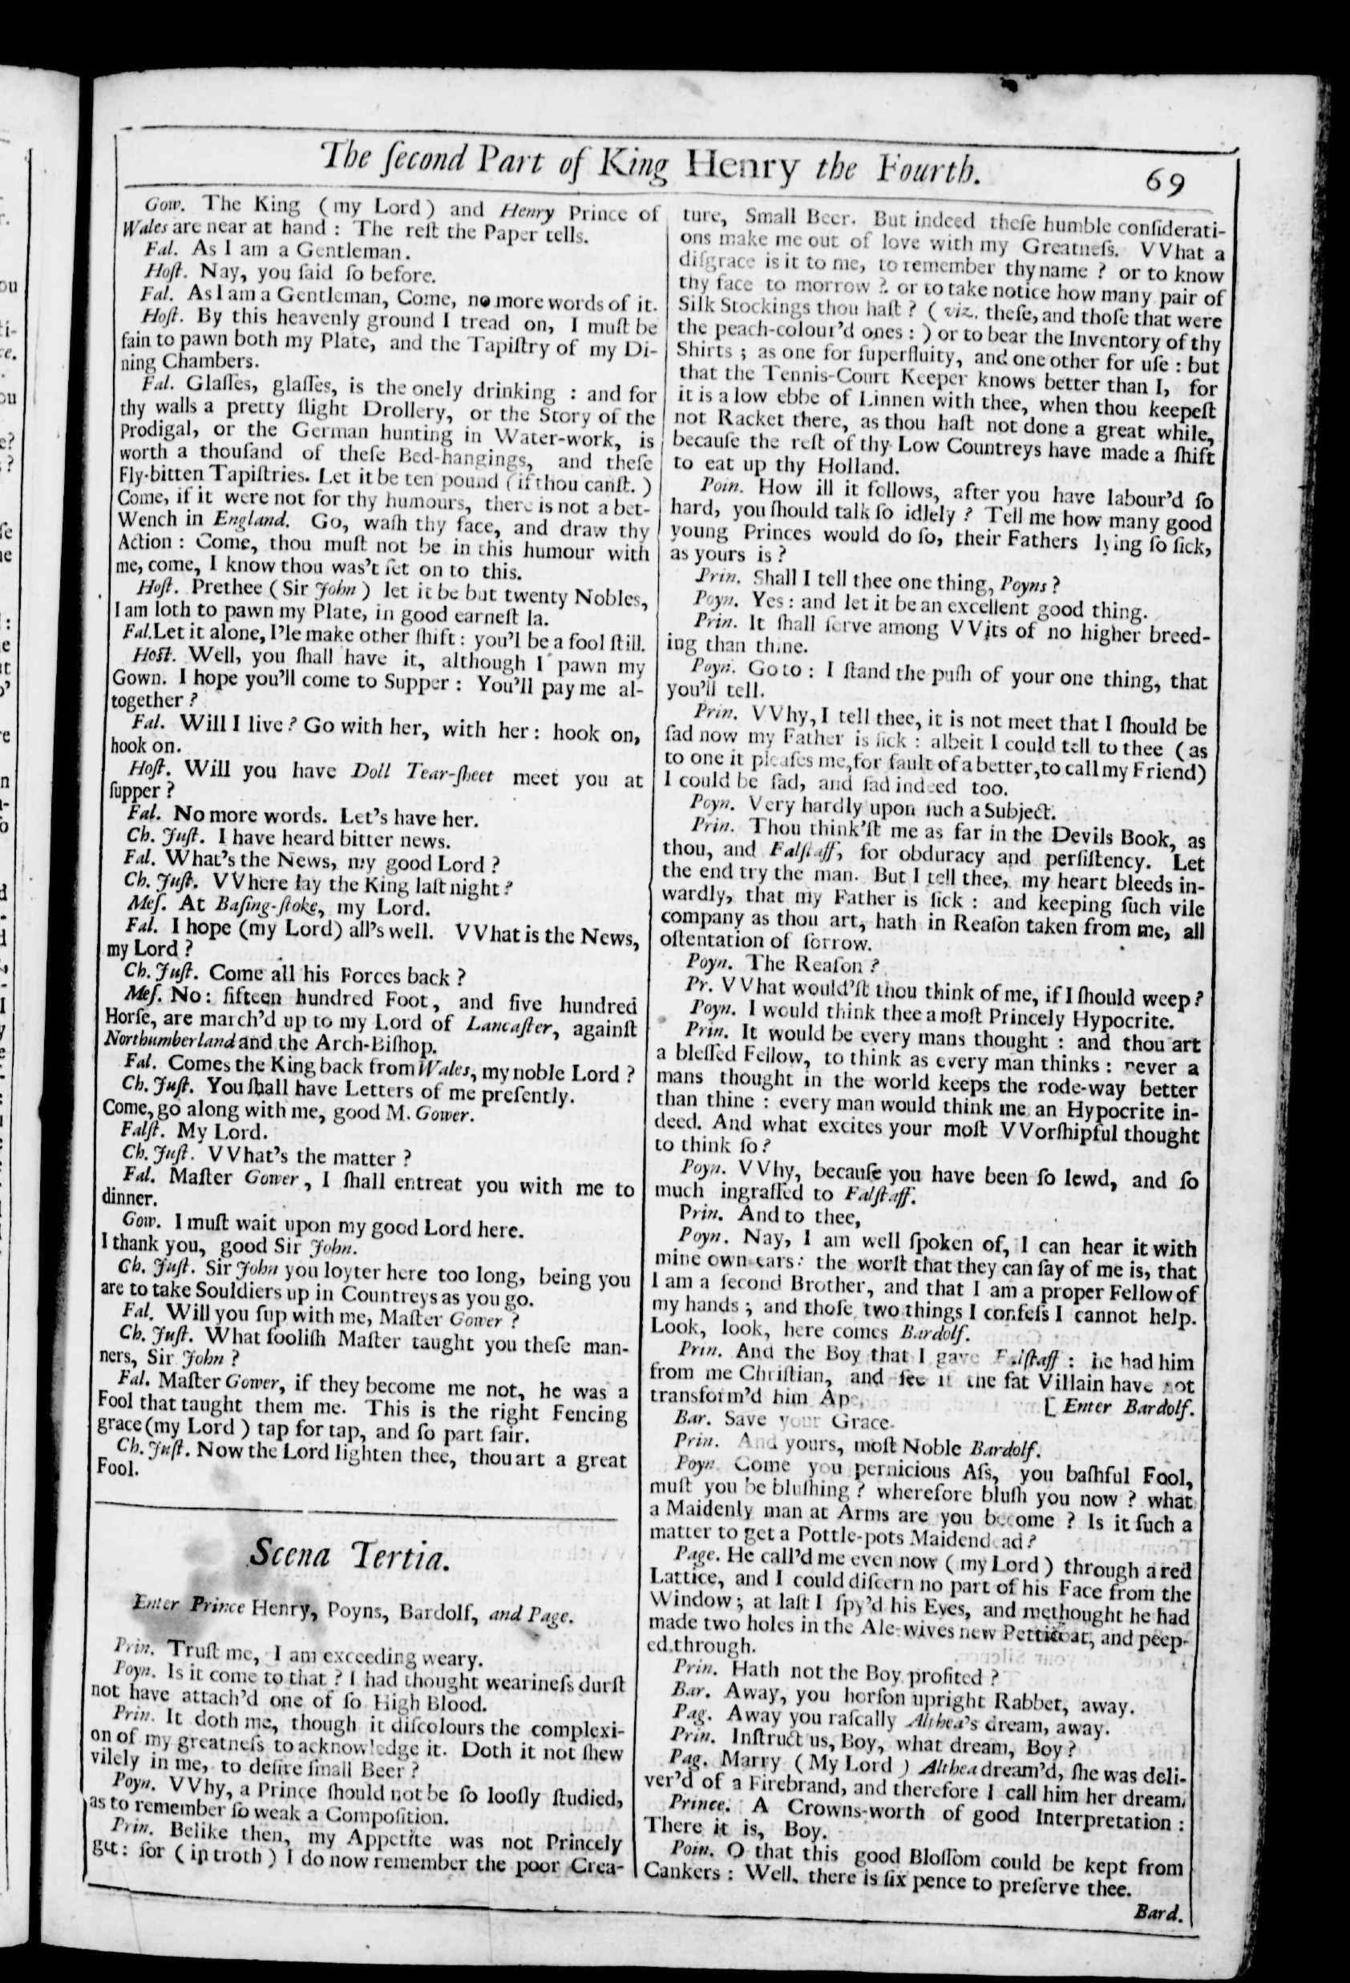 The ſecond Part of King Henry the Fourth.
69
Gow. The King (my Lord) and Henry Prince of
Wales are near at hand : The reſt the Paper tells.
Fal. As I am a Gentleman.
Hoſt. Nay, you ſaid ſo before.
Fal. As I am a Gentleman, Come, no more words of it.
Hoſt. By this heavenly ground I tread on, I muſt be
fain to pawn both my Plate, and the Tapiſtry of my Di-
ning Chambers.
Fal. Glaſſes, glaſſes, is the onely drinking : and for
thy walls a pretty ſlight Drollery, or the Story of the
Prodigal, or the German hunting in Water-work, is
worth a thouſand of theſe Bed-hangings, and theſe
Fly-bitten Tapiſtries. Let it be ten pound (if thou canſt.)
Come, if it were not for thy humours, there is not a bet-
Wench in England. Go, waſh thy face, and draw thy
Action : Come, thou muſt not be in this humour with
me, come, I know thou was't ſet on to this.
Hoſt. Prethee (Sir John) let it be but twenty Nobles,
I am loth to pawn my Plate, in good earneſt la.
Fal. Let it alone, I'le make other ſhift : you'l be a fool ſtill.
Hoſt. Well, you ſhall have it, although I pawn my
Gown. I hope you'll come to Supper : You'll pay me al-
together ?
Fal. Will I live ? Go with her, with her : hook on,
hook on.
Hoſt. Will you have Doll Tear-ſheet meet you at
ſupper ?
Fal. No more words. Let's have her.
Ch. Juſt. I have heard bitter news.
Fal. What's the News, my good Lord ?
Ch. Juſt. VVhere lay the King laſt night ?
Meſ. At Baſing-ſtoke, my Lord.
Fal. I hope (my Lord) all's well. VVhat is the News,
my Lord ?
Ch. Juſt. Come all his Forces back ?
Meſ. No : fifteen hundred Foot, and five hundred
Horſe, are march'd up to my Lord of Lancaſter, againſt
Northumberland and the Arch-Biſhop.
Fal. Comes the King back from Wales, my noble Lord ?
Ch. Juſt. You ſhall have Letters of me preſently.
Come, go along with me, good M. Gower.
Falſt. My Lord.
Ch. Juſt. VVhat's the matter ?
Fal. Maſter Gower, I ſhall entreat you with me to
dinner.
Gow. I muſt wait upon my good Lord here.
I thank you, good Sir John.
Ch. Juſt. Sir John you loyter here too long, being you
are to take Souldiers up in Countreys as you go.
Fal. Will you ſup with me, Maſter Gower ?
Ch. Juſt. What fooliſh Maſter taught you theſe man-
ners, Sir John ?
Fal. Maſter Gower, if they become me not, he was a
Fool that taught them me. This is the right Fencing
grace (my Lord) tap for tap, and ſo part fair.
Ch. Juſt. Now the Lord lighten thee, thou art a great
Fool.
Scena Tertia.
Enter Prince Henry, Poyns, Bardolf, and Page.
Prin. Truſt me, I am exceeding weary.
Poyn. Is it come to that ? I had thought wearineſs durſt
not have attach'd one of ſo High Blood.
Prin. It doth me, though it diſcolours the complexi-
on of my greatneſs to acknowledge it. Doth it not ſhew
vilely in me, to deſire ſmall Beer ?
Poyn. VVhy, a Prince ſhould not be ſo looſly ſtudied,
as to remember ſo weak a Compoſition.
Prin. Belike then, my Appetite was not Princely
got : for (in troth) I do now remember the poor Crea-
ture, Small Beer. But indeed theſe humble conſiderati-
ons make me out of love with my Greatneſs. VVhat a
diſgrace is it to me, to remember thy name ? or to know
thy face to morrow ? or to take notice how many pair of
Silk Stockings thou haſt ? (viz. theſe, and thoſe that were
the peach-colour'd ones :) or to bear the Inventory of thy
Shirts ; as one for ſuperfluity, and one other for uſe : but
that the Tennis-Court Keeper knows better than I, for
it is a low ebbe of Linnen with thee, when thou keepeſt
not Racket there, as thou haſt not done a great while,
becauſe the reſt of thy Low Countreys have made a ſhift
to eat up thy Holland.
Poin. How ill it follows, after you have labour'd ſo
hard, you ſhould talk ſo idlely ? Tell me how many good
young Princes would do ſo, their Fathers lying ſo ſick,
as yours is ?
Prin. Shall I tell thee one thing, Poyns ?
Poyn. Yes : and let it be an excellent good thing.
Prin. It ſhall ſerve among VVits of no higher breed-
ing than thine.
Poyn. Go to : I ſtand the puſh of your one thing, that
you'll tell.
Prin. VVhy, I tell thee, it is not meet that I ſhould be
ſad now my Father is ſick : albeit I could tell to thee (as
to one it pleaſes me, for fault of a better, to call my Friend)
I could be ſad, and ſad indeed too.
Poyn. Very hardly upon ſuch a Subject.
Prin. Thou think'ſt me as far in the Devils Book, as
thou, and Falſtaff, for obduracy and perſiſtency. Let
the end try the man. But I tell thee, my heart bleeds in-
wardly, that my Father is ſick : and keeping ſuch vile
company as thou art, hath in Reaſon taken from me, all
oſtentation of ſorrow.
Poyn. The Reaſon ?
Pr. VVhat would'ſt thou think of me, if I ſhould weep ?
Poyn. I would think thee a moſt Princely Hypocrite.
Prin. It would be every mans thought : and thou art
a bleſſed Fellow, to think as every man thinks : never a
mans thought in the world keeps the rode-way better
than thine : every man would think me an Hypocrite in-
deed. And what excites your moſt VVorſhipful thought
to think ſo ?
Poyn. VVhy, becauſe you have been ſo lewd, and ſo
much ingraffed to Falſtaff.
Prin. And to thee,
Poyn. Nay, I am well ſpoken of, I can hear it with
mine own ears : the worſt that they can ſay of me is, that
I am a ſecond Brother, and that I am a proper Fellow of
my hands ; and thoſe two things I confeſs I cannot help.
Look, look, here comes Bardolf.
Prin. And the Boy that I gave Falſtaff : he had him
from me Chriſtian, and ſee if the fat Villain have not
transform'd him Ape. [Enter Bardolf.
Bar. Save your Grace.
Prin. And yours, moſt Noble Bardolf.
Poyn. Come you pernicious Aſs, you baſhful Fool,
muſt you be bluſhing ? wherefore bluſh you now ? what
a Maidenly man at Arms are you become ? Is it ſuch a
matter to get a Pottle-pots Maidenhead ?
Page. He call'd me even now (my Lord) through a red
Lattice, and I could diſcern no part of his Face from the
Window ; at laſt I ſpy'd his Eyes, and methought he had
made two holes in the Ale-wives new Petticoat, and peep-
ed through.
Prin. Hath not the Boy profited ?
Bar. Away, you horſon upright Rabbet, away.
Pag. Away you raſcally Althea's dream, away.
Prin. Inſtruct us, Boy, what dream, Boy ?
Pag. Marry (My Lord) Althea dream'd, ſhe was deli-
ver'd of a Firebrand, and therefore I call him her dream.
Prince. A Crowns-worth of good Interpretation :
There it is, Boy.
Poin. O that this good Bloſſom could be kept from
Cankers : Well, there is ſix pence to preſerve thee.
Bard.